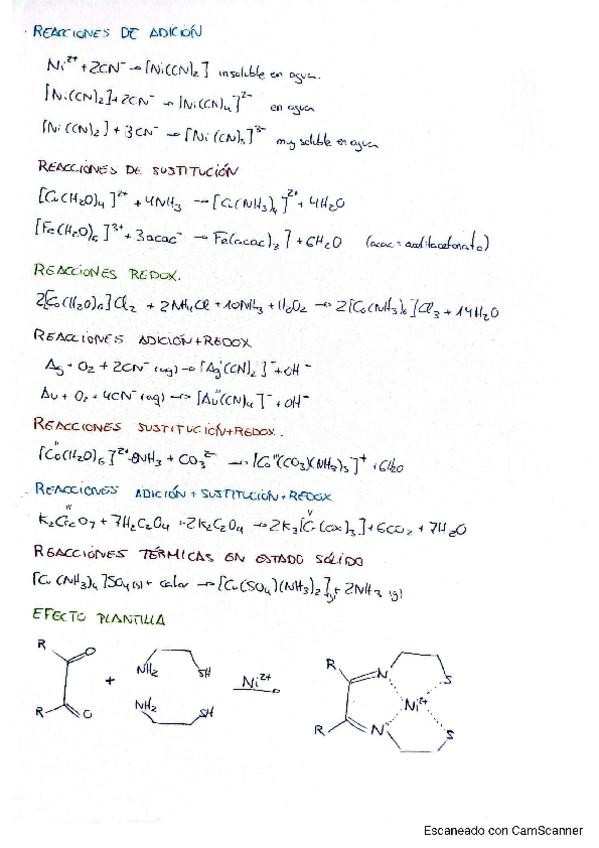 REACCIONES DE ADICIÓN
Ni²⁺ + 2CN⁻ → [Ni(CN)₂] insoluble en agua.
[Ni(CN)₂] + 2CN⁻ → [Ni(CN)₄]²⁻ en agua
[Ni(CN)₂] + 3CN⁻ → [Ni(CN)₅]³⁻ muy soluble en agua
REACCIONES DE SUSTITUCIÓN
[Cu(H₂O)₄]²⁺ + 4NH₃ → [Cu(NH₃)₄]²⁺ + 4H₂O
[Fe(H₂O)₆]³⁺ + 3acac⁻ → Fe(acac)₃] + 6H₂O (acac = acetilacetonato)
REACCIONES REDOX.
2[Co(H₂O)₆]Cl₂ + 2NH₄Cl + 10NH₃ + H₂O₂ → 2[Co(NH₃)₆]Cl₃ + 14H₂O
REACCIONES ADICIÓN+REDOX
Ag + O₂ + 2CN⁻ (aq) → [Ag(CN)₂]⁻ + OH⁻
Au + O₂ + 4CN⁻ (aq) → [Au(CN)₄]⁻ + OH⁻
REACCIONES SUSTITUCIÓN+REDOX.
[Co(H₂O)₆]²⁺ 8NH₃ + CO₃²⁻ → [Co(CO₃)(NH₃)₅]⁺ + 6H₂O
REACCIONES ADICIÓN + SUSTITUCIÓN + REDOX
K₂Cr₂O₇ + 7H₂C₂O₄ + 2K₂C₂O₄ → 2K₃[Cr(ox)₃] + 6CO₂ + 7H₂O
REACCIONES TÉRMICAS EN ESTADO SÓLIDO
[Cu(NH₃)₄]SO₄(s) + calor → [Cu(SO₄)(NH₃)₂] + 2NH₃ (g)
EFECTO PLANTILLA
R O NH₂ SH R N S
+ Ni²⁺ Ni²⁺
R O NH₂ SH R N S
Escaneado con CamScanner